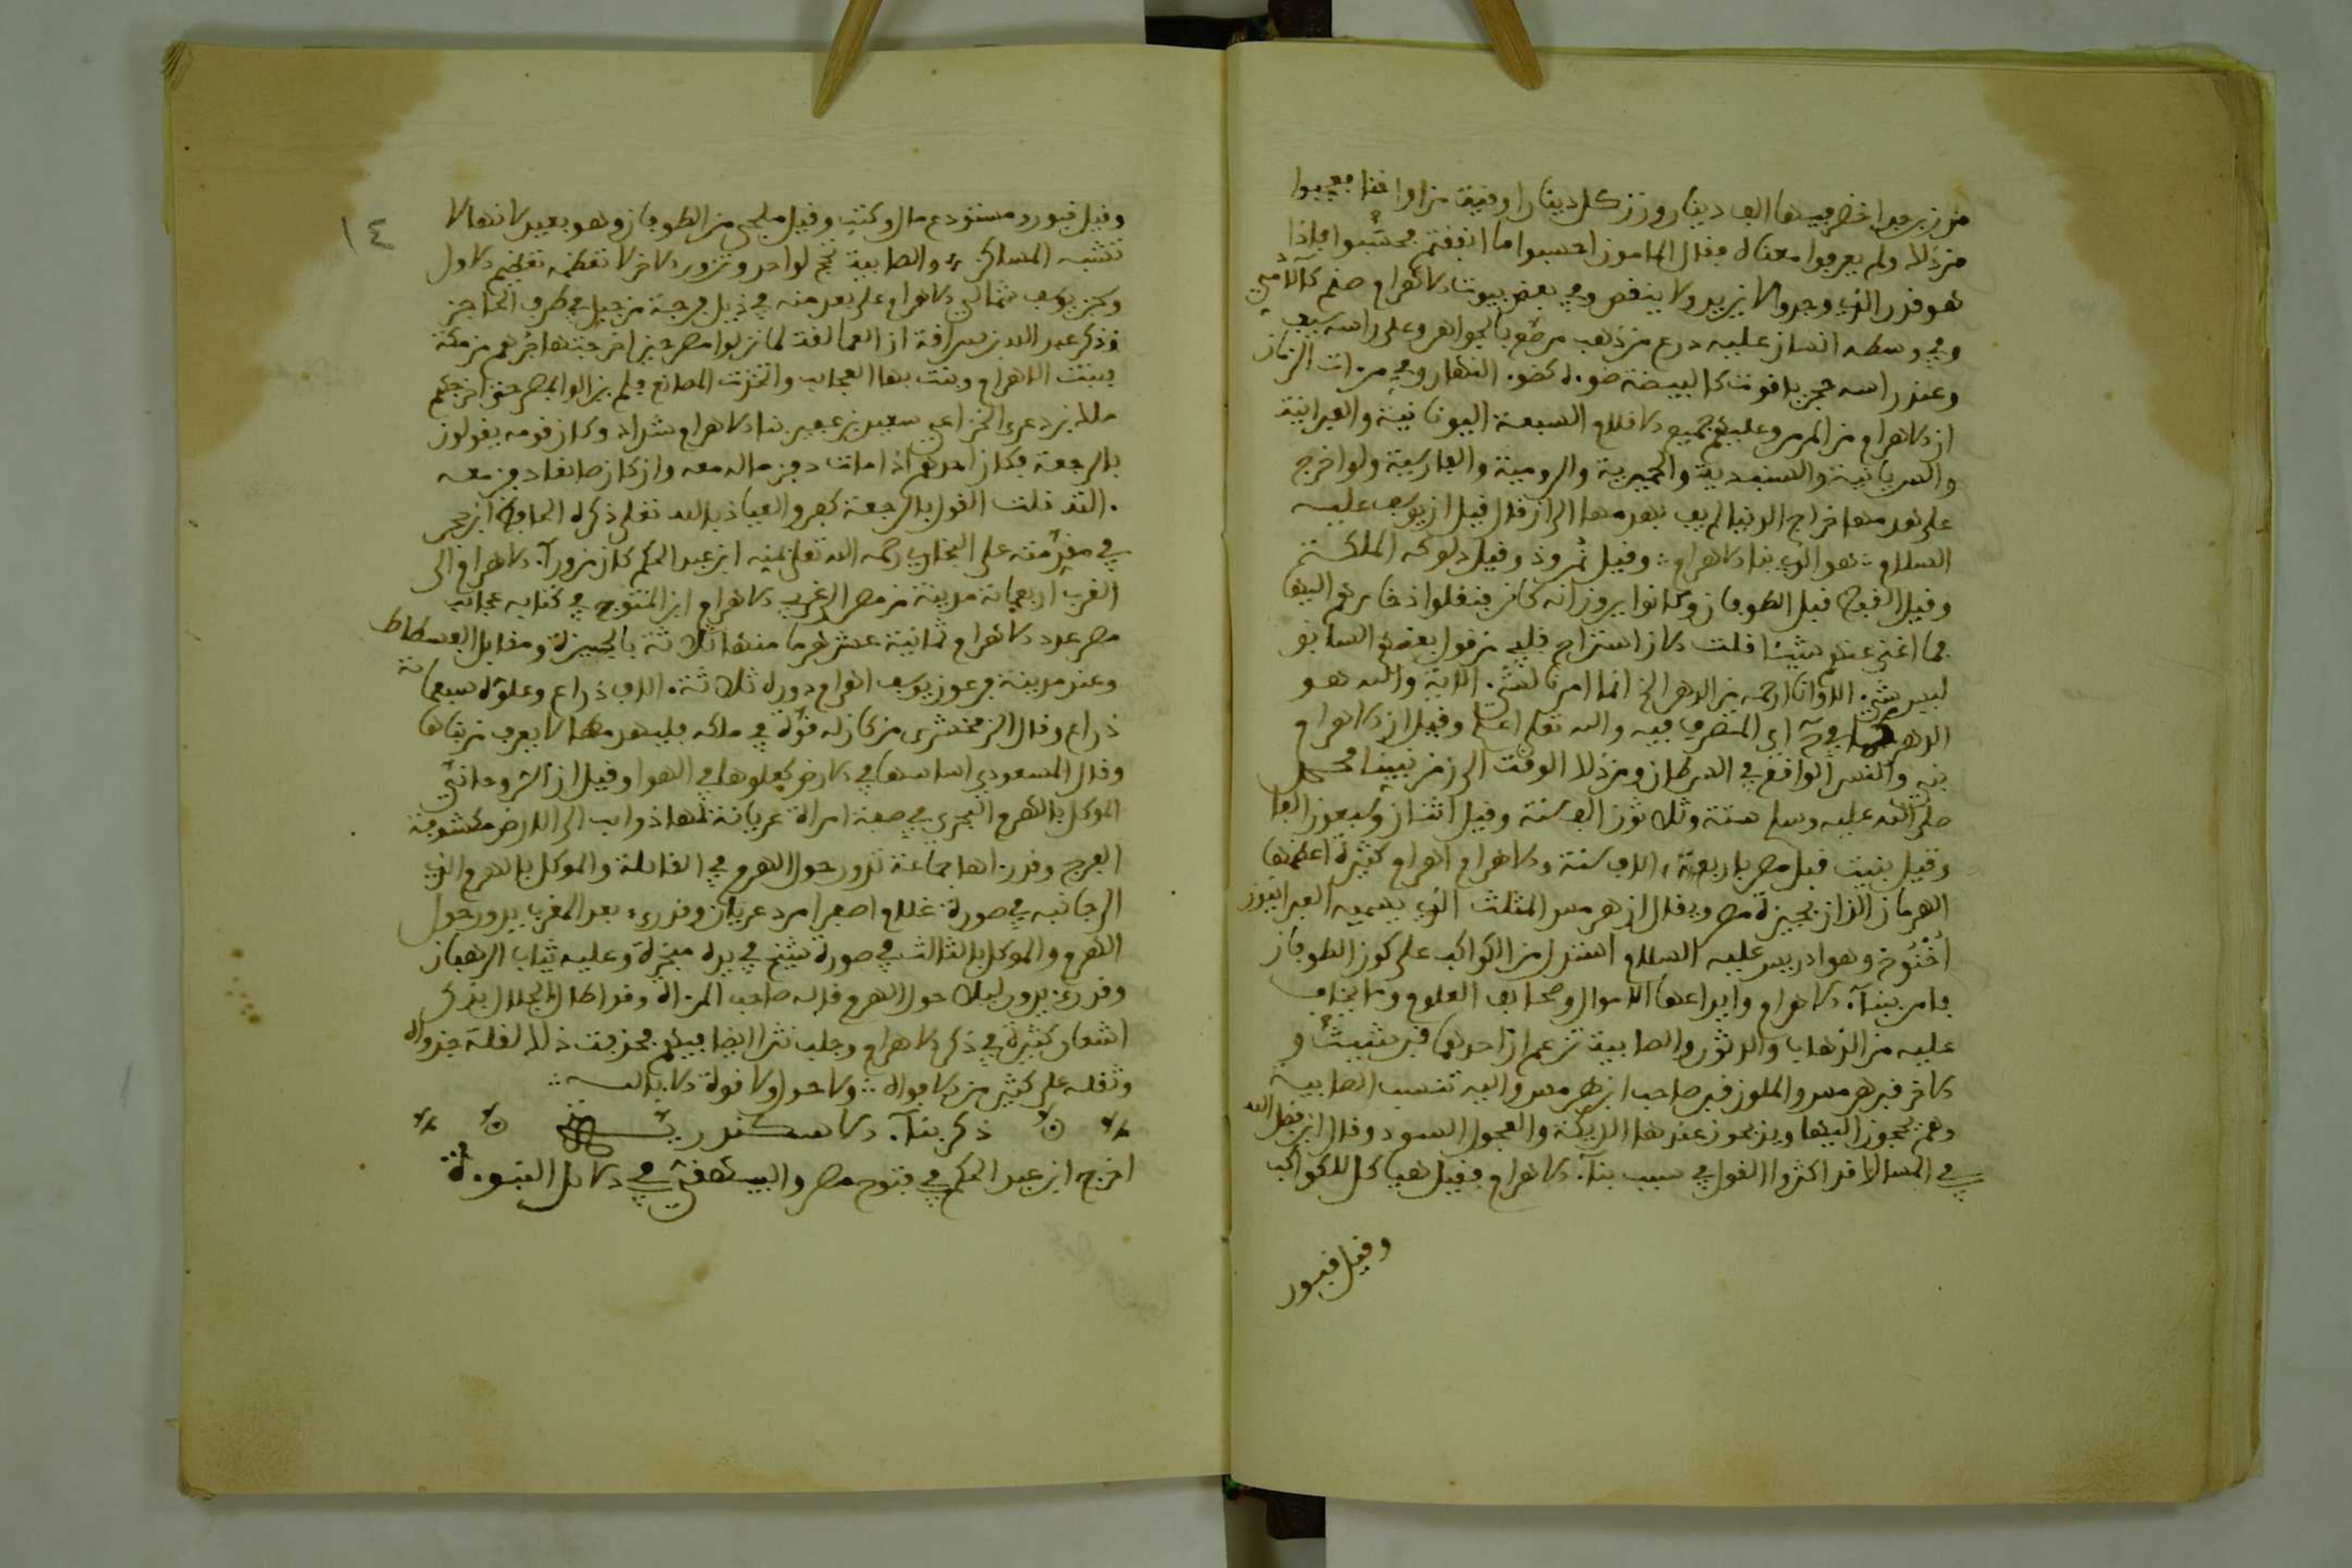 من زبرجد اخضر فيها الف دينار وزن كل دينار اوقية من اواقنا فعجبوا
من ذلك ولم يعرفوا معناه فقال المامون احسبوا ما انفقتم فحسبوا فاذا
هو قدر الذي وجدوا لا يزيد ولا ينقص وفي بعض بيوت الاهرام صنم كالادمي
وفي وسطه انسان عليه درع من ذهب مرصع بالجواهر وعلى راسه سيف
وعند راسه حجر ياقوت كالبيضة ضوءه كضوء النهار وفي مرءات الزمان
ان الاهرام من المرمر وعليهم جميع الاقلام السبعة اليونانية والعبرانية
والسريانية والسندية والحميرية والرومية والفارسية ولو اخرج
على هدمها خراج الدنيا لم يف بهدمها الرازي قال قيل ان يوسف عليه
السلام هو الذي بنا الاهرام وقيل نمروذ وقيل دلوكه الملكة
وقيل القبط قبل الطوفان وكانوا يرون انه كائن فنقلوا ذخائرهم اليها
فما اغنى عنهم شيئا قلت كان استراح قلبي من قول بعضهم السابق
ليس شيء الا وانا ارحمه من الدهر الخ انما امرنا لشيء الاية والله هو
الدهر كما في اي المتصرف فيه والله تعلى اعلم وقيل ان الاهرام
بني والنسر الواقع في السرطان ومن ذلك الوقت الى زمن نبينا محمد
صلى الله عليه وسلم ستة وثلاثون الف سنة وقيل اثنان وسبعون الفا
وقيل بنيت قبل مصر باربعة ءالاف سنة والاهرام اهرام كثيرة اعظمها
الهرمان اللذان بجيزة مصر ويقال ان هرمس المثلث الذي يسميه العبرانيون
اخنوخ وهو ادريس عليه السلام استدل من الكواكب على كون الطوفان
فامر ببناء الاهرام وايداعها الاموال وصحايف العلوم وما يخاف
عليه من الذهاب والدثور والصابية تزعم ان احدهما قبر شيث و
الاخر قبر هرمس والملون قبر صاحب ابن هرمس واليه تنسب الصابية
وهم يحجون اليها ويذبحون عندها الديكة والعجول السود وقال ابن فضل الله
في المسالك قد اكثروا القول في سبب بناء الاهرام فقيل هياكل للكواكب
وقيل قبور
١٤
وقيل قبور ومستودع مال وكتب وقيل ملجى من الطوفان وهو بعيد لانها لا
تشبه المساكن والصابية تحج لواحد وتزور الاخر لا تعظمه تعظيم الاول
وسجن يوسف شمالي الاهرام على بعد منه في ذيل فرجة من جبل في طرف الحاجز
وذكر عبد الله بن سراقة ان العمالقة لما نزلوا مصر حين اخرجتها جرهم من مكة
بنت الاهرام وبنت بها العجايب واتخذت المصانع فلم يزالوا بمصر حتى اخرجهم
مالك بن دعر الخزاعي سعيد بن عفير بنا الاهرام شداد وكان قومه يقولون
بالرجعة فكان احدهم اذا مات دفن ماله معه وان كان صانعا دفن معه
ءالته قلت القول بالرجعة كفر والعياذ بالله تعلى ذكره الحافظ ابن حجر
في مقدمته على البخاري رحمه الله تعلى بمنه ابن عبد الحكم كان من وراء الاهرام الى
الغرب اربعمائة مدينة من مصر الى غربي الاهرام ابن المتوج في كتابه عجائب
مصر عدد الاهرام ثمانية عشر هرما منها ثلاثة بالجيزة ومقابل الفسطاط
وعند مدينة فرعون يوسف اهرام دوره ثلاثة ءالاف ذراع وعلوه سبعمائة
ذراع وقال الزمخشري من كان له قوة في ملكه فليهدمها لا يعرف من بناها
وقال المسعودي اساسها في الارض كعلوها في الهوا وقيل ان الروحاني
الموكل بالهرم البحري في صفة امراة عريانة لها ذوائب الى الارض مكشوفة
الفرج وقد رءاها جماعة تدور حول الهرم في القائلة والموكل بالهرم الذي
الى جانبه في صورة غلام اصفر امرد عريان وقد رءي بعد المغرب يدور حول
الهرم والموكل بالثالث في صورة شيخ في يده مبخرة وعليه ثياب الرهبان
وقد رءي يدور ليلا حول الهرم قاله صاحب المرءاة وقد اطال الجلال بذكر
اشعار كثيرة في ذكر الاهرام وجلب نثرا ايضا فيهم فحذفت ذلك لقلة جدواه
وثقله على كثير من الافواه ولا حول ولا قوة الا بالله
ذكر بناء الاسكندرية
اخرج ابن عبد الحكم في فتوح مصر والبيهقي في دلائل النبوءة